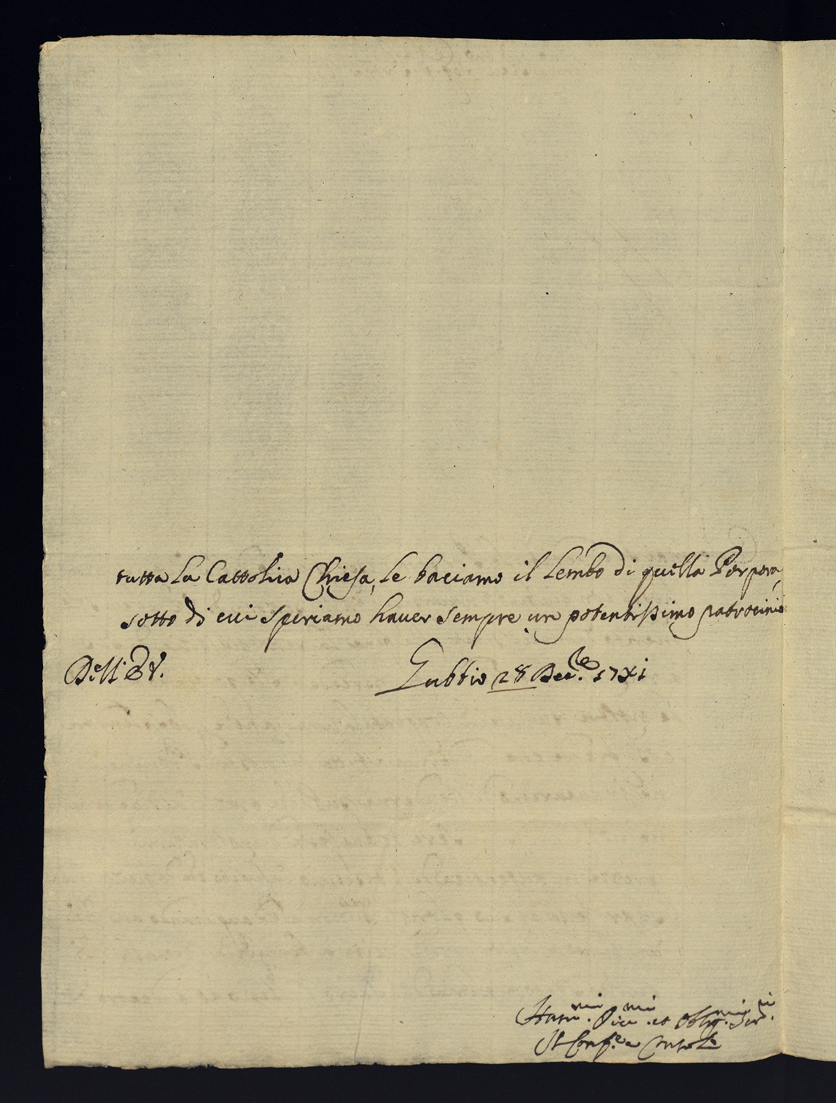 tutta La Cattolica Chiesa, le baciamo il Lembo di quella Porpora,
sotto di cui speriamo haver sempre un potentissimo patrocinio
Dell' E V.
Gubbio 28 Dec.re 1711
Hum.mi Div.mi et Obblig.mi Ser.ri
Il Conf.e e Consoli